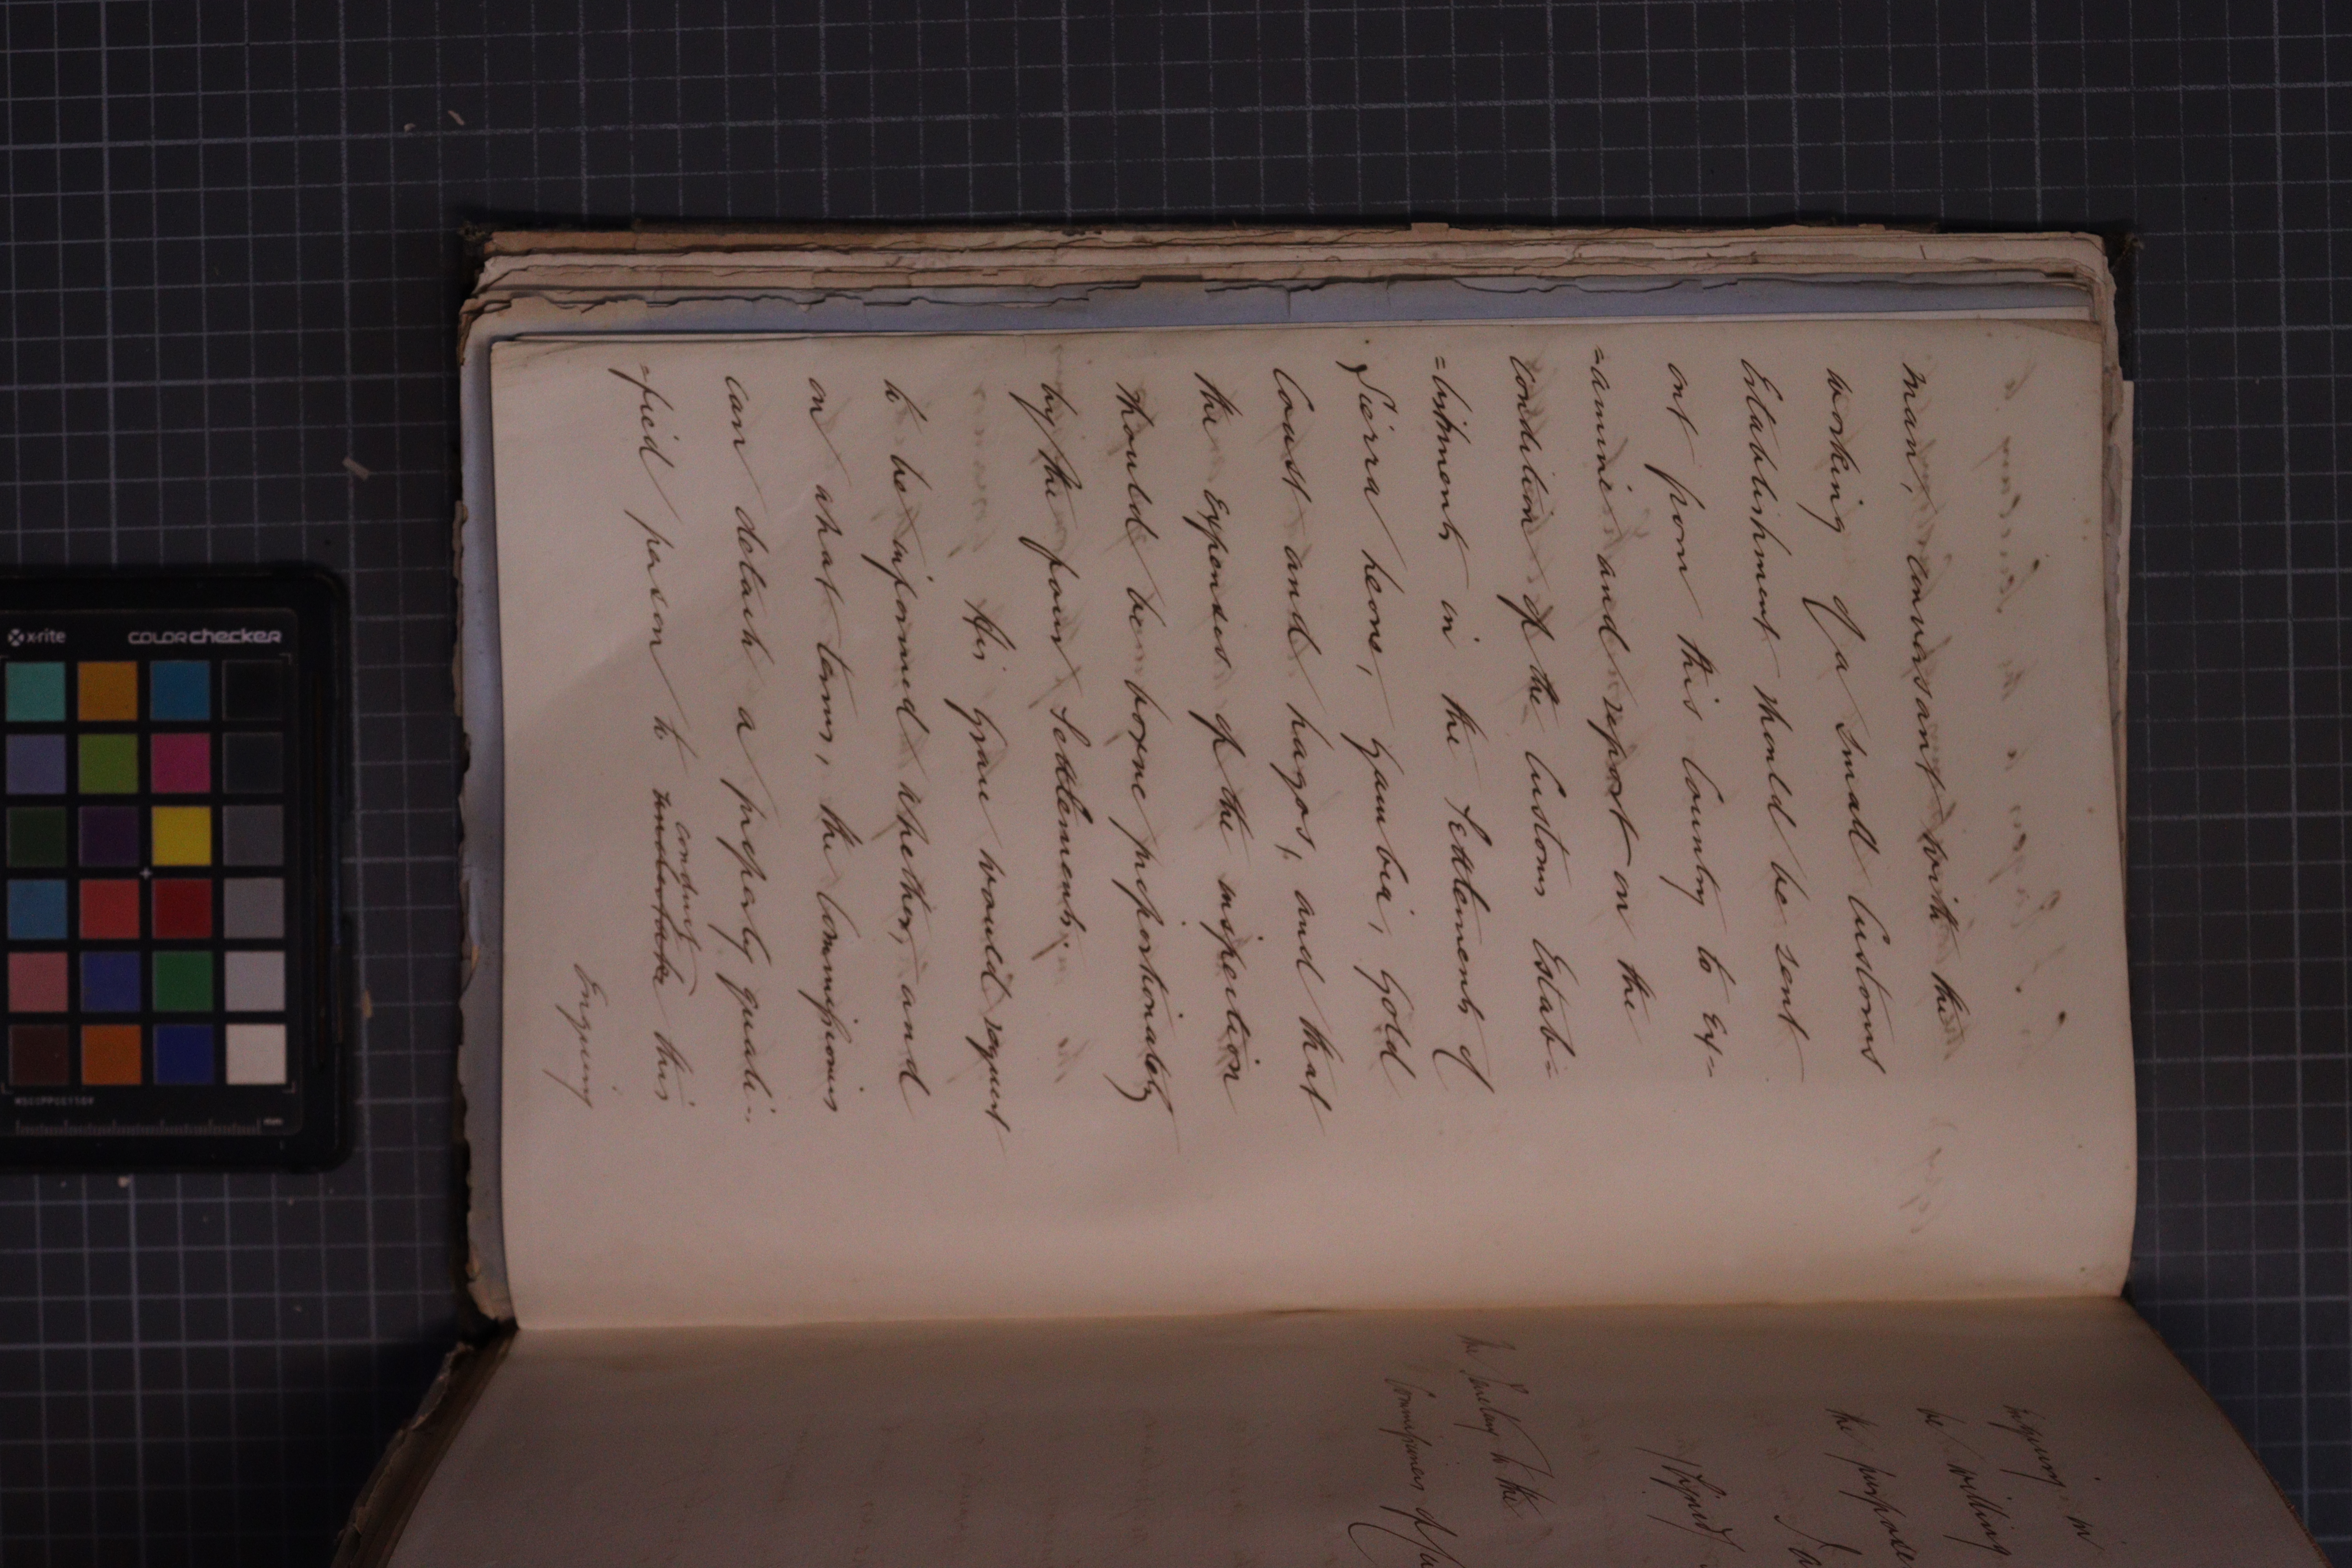 man, conversant with the
working of a small Customs
Establishment should be sent
out from this Country to ex=
=amine and report on the
condition of the Customs Estab=
=lishments in the Settlements of
Sierra Leone, Gambia, Gold
Coast and Lagos, and that
the Expenses of the inspection
should be borne proportionately
by the four Settlements.
His Grace would request
to be informed whether, and
on what terms, the Commissioners
can detach a properly quali=
=fied person to undertake conduct this
Enquiry
Enquiry, in
be willing
the purpose
/Signed/
The Secretary to the
Commissioners of
x-rite
colorchecker